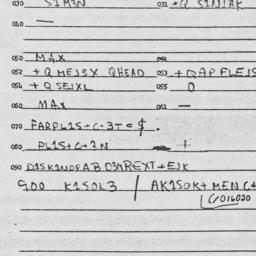 030 S1M3N 031 +Q S1N1AK
040 —
050 MAX 051
052 + Q MEJ3X QHEAD 053 + QAP FLEJS
054 + Q SEJXL 055 0
060 MAX 061 —
070 FARPL1S+C-3T=$.
080 PL1S+C+3N +
090 D1SK1NDFAB C3MREXT+EJK
900 K1S0K3 / AK1S0K+ MEN C+